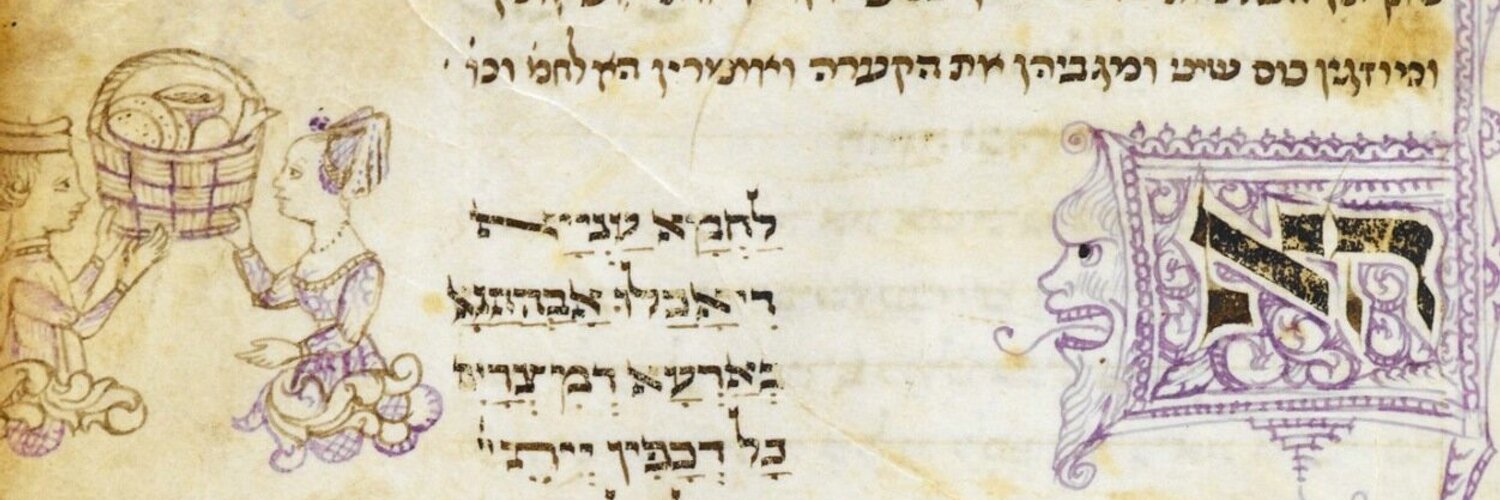 ומוזגין כוס שיני ומיגביהן את הקערה ואומרין הא לחמ' וכו'
הא
לַחְמָא עַנְיָא
דִי אֲכָלוּ אֲבָהָתָנָא
בְּאַרְעָא דְמִצְרָיִ
כָּל דִכְפִין יֵיתֵי